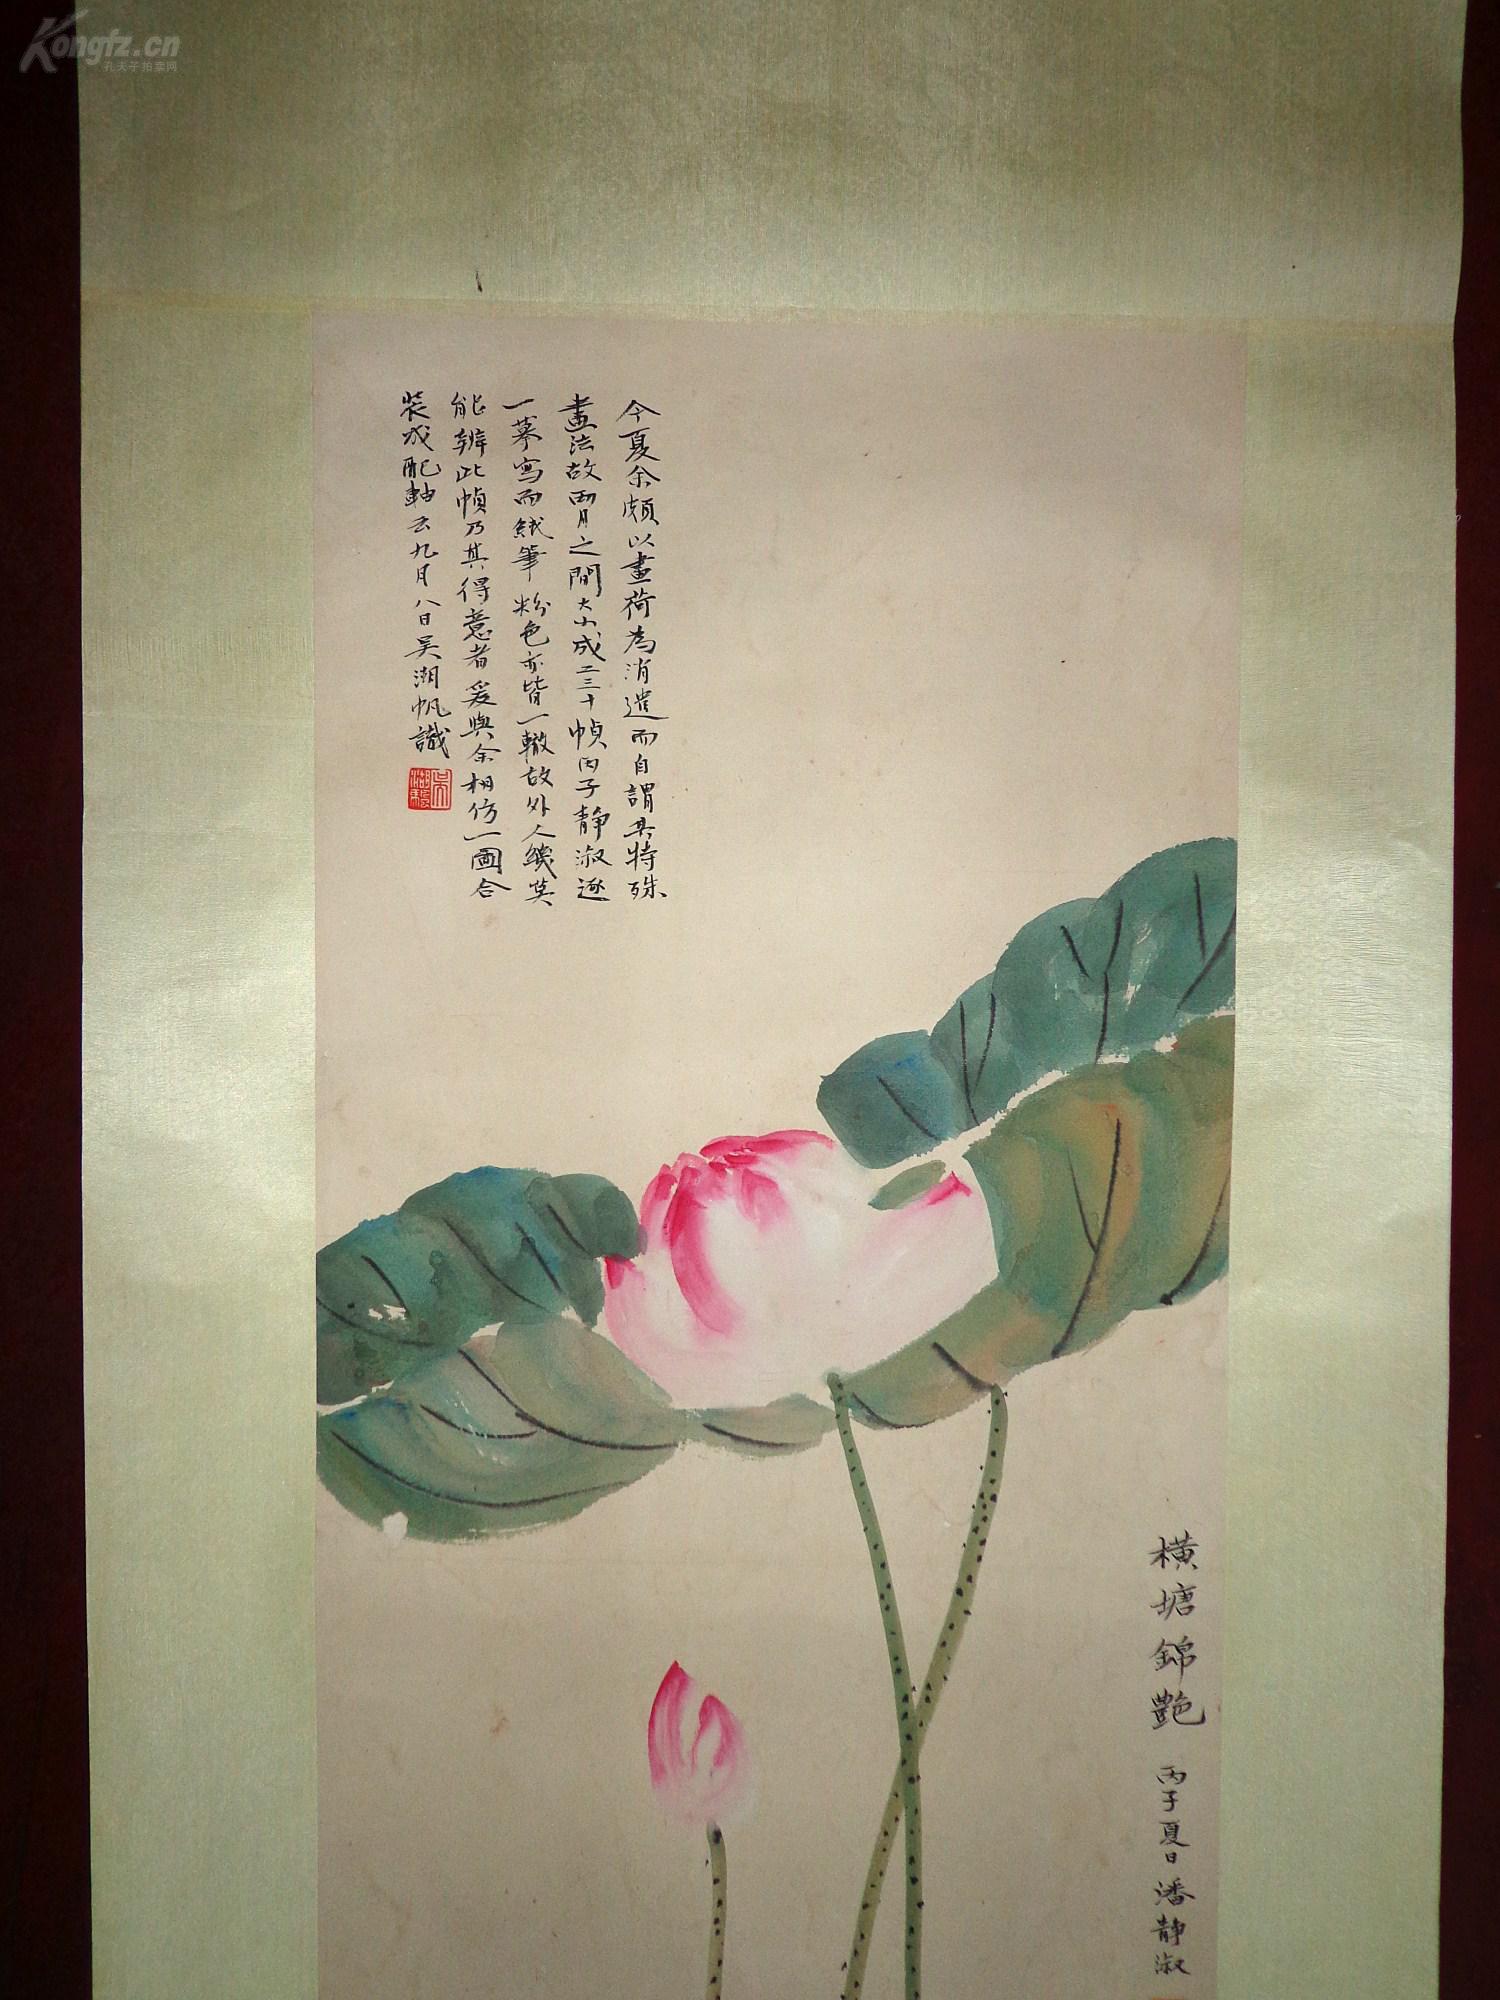 Kongfz.cn
孔夫子拍卖网
今夏余頗以畫荷為消遣而自謂具特殊
畫法故兩月之間大小成二三十幀丙子静淑逐
一摹寫而紙筆粉色亦皆一轍故外人幾莫
能辨此幀乃其得意者爰與余相仿一圖合
裝成配軸云九月八日吴湖帆識
横塘錦艷
丙子夏日潘静淑